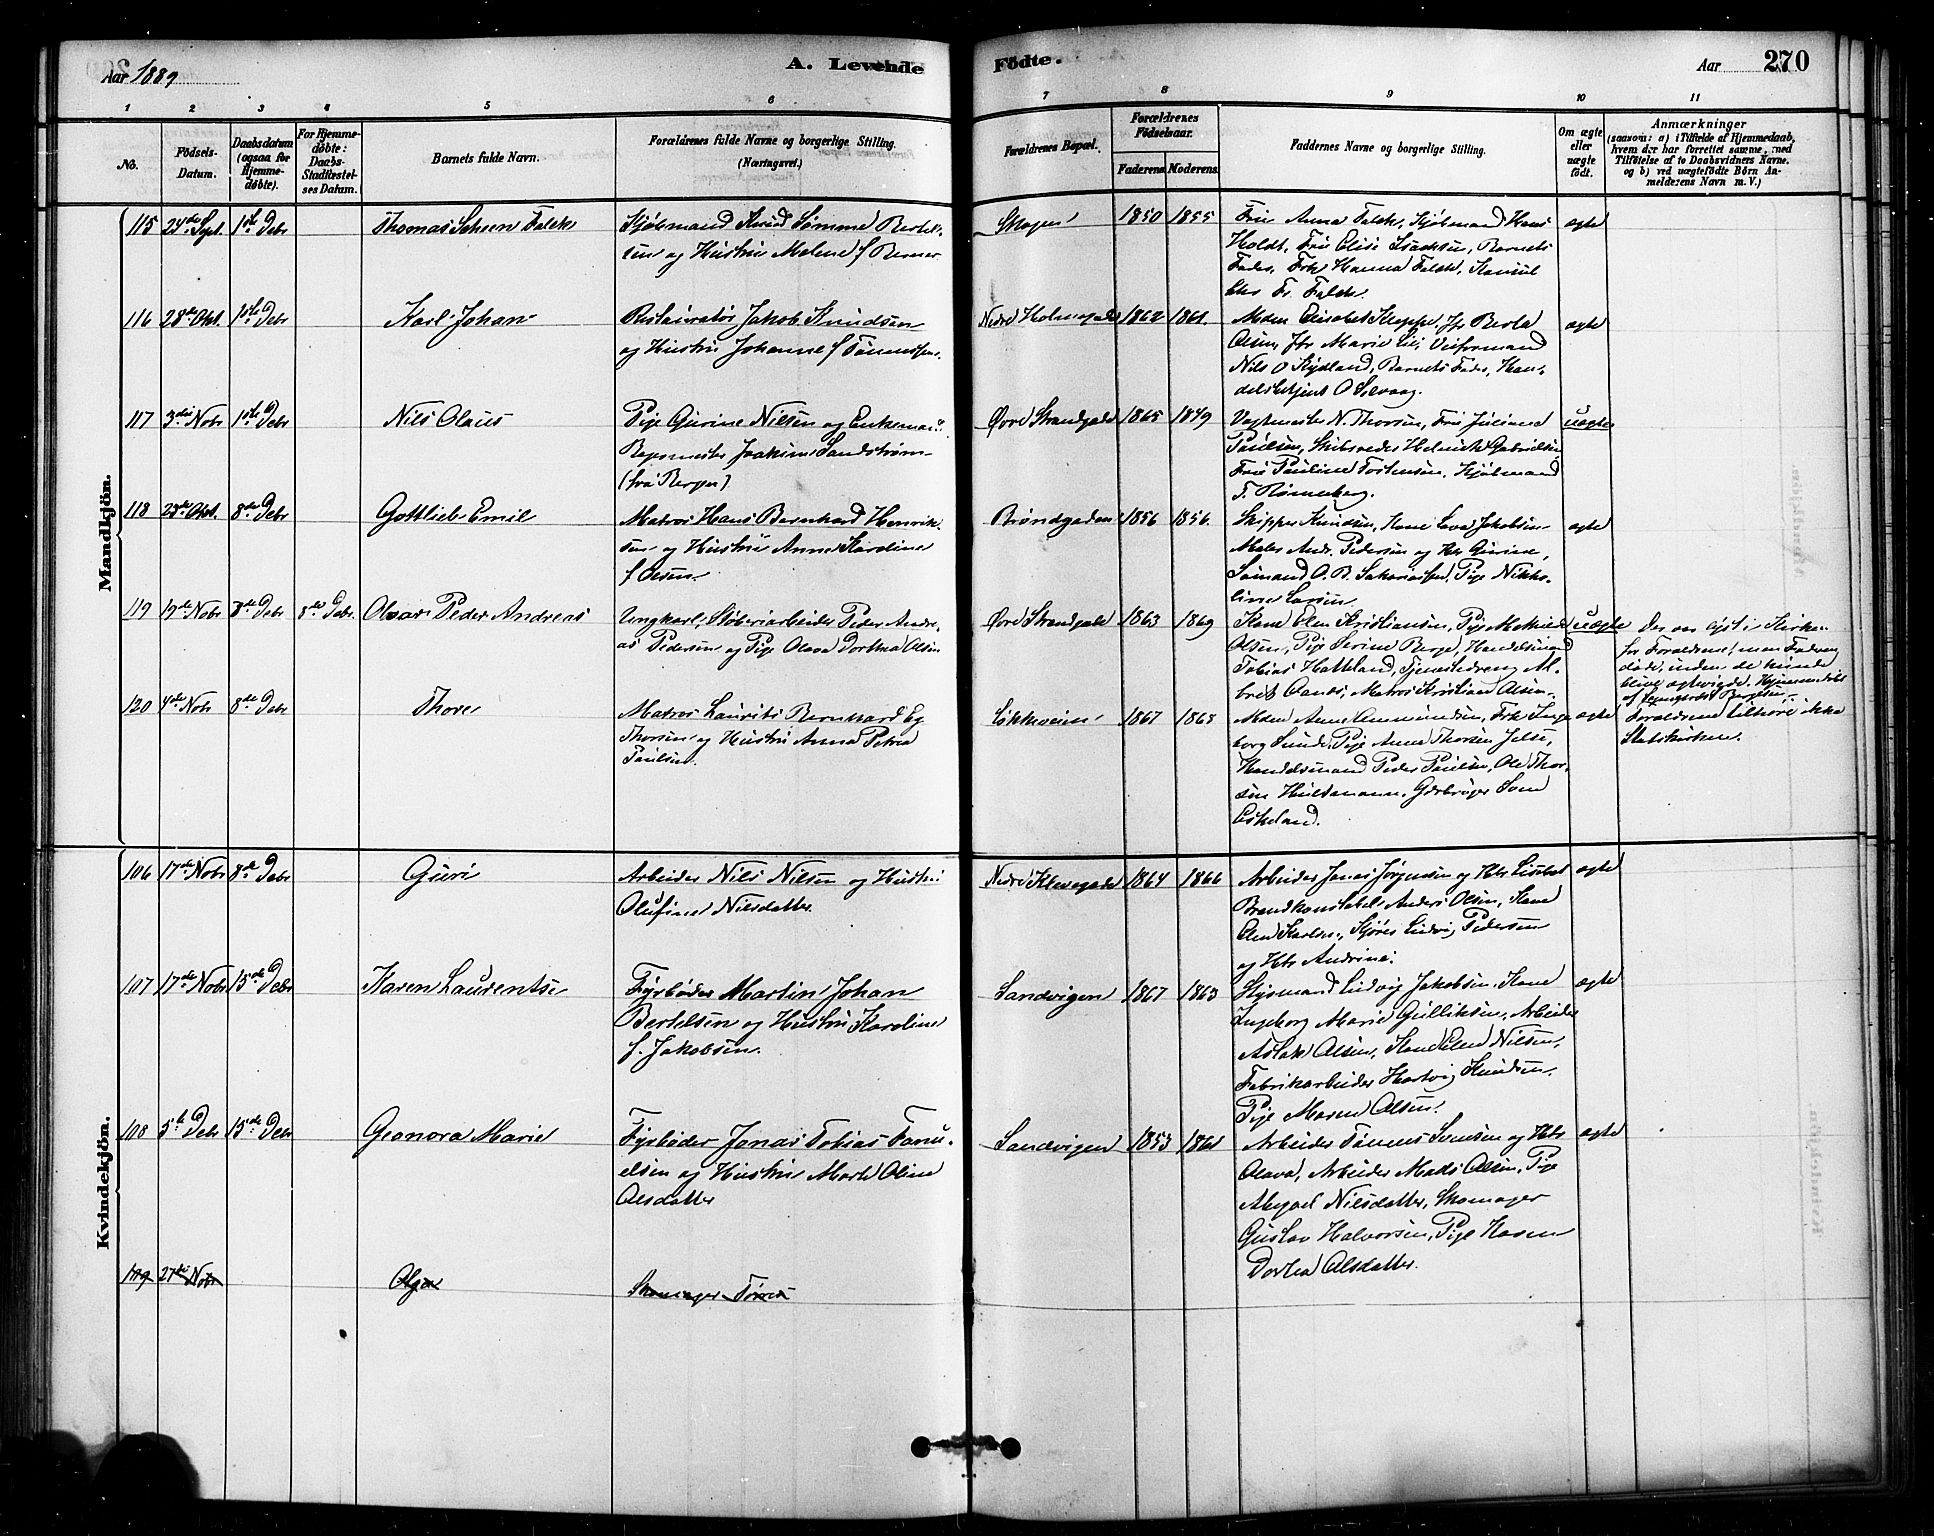 Aar 1889 A. Levende Födte. Aar 270
1 2 3 4 5 6 7 8 9 10 11
No. Födsels-Datum. Daabsdatum (ogsaa for Hjemmedöbte). For Hjemmedöbte: Daabs-Stadfæstelses Datum. Barnets fulde Navn. Forældrenes fulde Navne og borgerlige Stilling. (Næringsvei.) Forældrenes Bopæl. Forældrenes Födselsaar. Faderens Moderens. Faddernes Navne og borgerlige Stilling. Om ægte eller uægte födt. Anmærkninger (saasom: a) i Tilfælde af Hjemmedaab, hvem der har forrettet samme, med Tilföielse af to Daabsvidners Navne, og b) ved uægtefödte Börn Anmelderens Navn m. V.)
Mandkjön.
115 24de Sept. 1ste Debr Thomas Falck
Knud Sømme Bertel-
sen og Hustru Malene f Berner
Skagen 1850 1855
Fru Anna Falck, Hans
Holdt, Fru Elise Isachsen, Barnets
Fader, Frk Hanna Falck, Konsul
Fr. Falck.
ægte
116 28de Okt. 1ste Debr Karl Johan
Restauratør Jakob Knudsen
og Hustru Johanne f Tønnessen
Nedre Holmegade 1862 1861.
Elisabet Kleppe, Jfr Berta
Olsen, Jfr Marie Lie, Veiformand
Nils O Kydland, Barnets Fader, Han-
delsbetjent O Selvaag.
ægte
117 3die Nobr 1ste Debr Nils Olaus
Pige Gurine Nilsen og Enkemand
Joakim Sandstrøm
(fra Bergen)
Øvre Strandgade 1865 1849
Vagtmester N. Thorsen, Fru Juliane
Paulsen, Skibsreder Helmick Gabrielsen,
Fru Pauline Torstensen,
T. Rønneberg.
uægte
118 23de Okt. 8de Debr Gottlieb Emil
Matros Hans Bernhard Henrik-
sen og Hustru Anne Karoline
f Olsen.
Brøndgaden 1856 1856.
Skipper Knudsen, Kone Lava Jakobsen
Maler Andr. Pedersen og Hu Gurine,
Sømand O. B. Sakariasen, Pige Nikko-
line Larsen.
ægte
119 19de Nobr 8de Debr 8de Debr. Oskar Peder Andreas
Ungkarl, Støberiarbeider Peder Andre-
as Pedersen og Pige Olava Dorthea Olsen
Øvre Strandgade 1863 1869
Kone Elen Kristiansen, Pige Mathilde
Olsen, Pige Serine Berge, Handelsmand
Tobias Hatteland, Tjenestedreng Al-
bret Aanes, Matros Kristian Olsen.
uægte
Der var lyst i Kirken
for Forældrene, men Faderen
døde, inden de kunde
blive ægteviede. Hjemmedøbt
af Bergesen.
120 4de Nobr 8de Debr Thore
Matros Laurits Bernhard Eg
Thorsen og Hustru Anna Petrea
Paulsen.
Løkkeveien 1867 1868
Anne Ommundsen, Frk Inge-
borg Sunde, Pige Anna Thorsen Jelse,
Handelsmand Peder Paulsen, Ole Thor-
sen Gårbruger Sven
Eskeland.
ægte
Forældrene tilhøre ikke
Statskirken.
Kvindekjön.
106 17de Nobr 8de Debr Guri
Arbeider Nils Nilsen og Hustru
Olufine Nilsdatter.
Nedre Klevegade 1864 1866
Arbeider Jonas Jørgensen og Hu Lisebet
Brandkonstabel Anders Olsen, Kone
Elen Karlsen, Ludvig Pedersen
og Hu Andrine.
ægte
107 17de Nobr 15de Debr Karen Laurentse
Fyrbøder Martin Johan
Bertelsen og Hustru Karoline
f. Jakobsen.
Sandvigen 1867 1863
Ludvig Jakobsen, Kone
Ingeborg Marie Gulliksen, Arbeider
Aslak Olsen, Kone Elen Nilsen,
Fabrikarbeider Hartvig Knudsen,
Pige Maren Olsen.
ægte
108 5te Debr 15de Debr Geonora Marie
Fyrbøder Jonas Tobias Tanu-
elsen og Hustru Marte Oline
Olsdatter
Sandvigen 1853 1861
Arbeider Tønnes Svensen og Hu
Olava, Arbeider Mads Olsen, Pige
Abigael Nilsdatter, Skomager
Gustav Halvorsen, Pige Karen
Dortea Olsdatter.
ægte
109 27de Nobr Olga Skomager Tørres